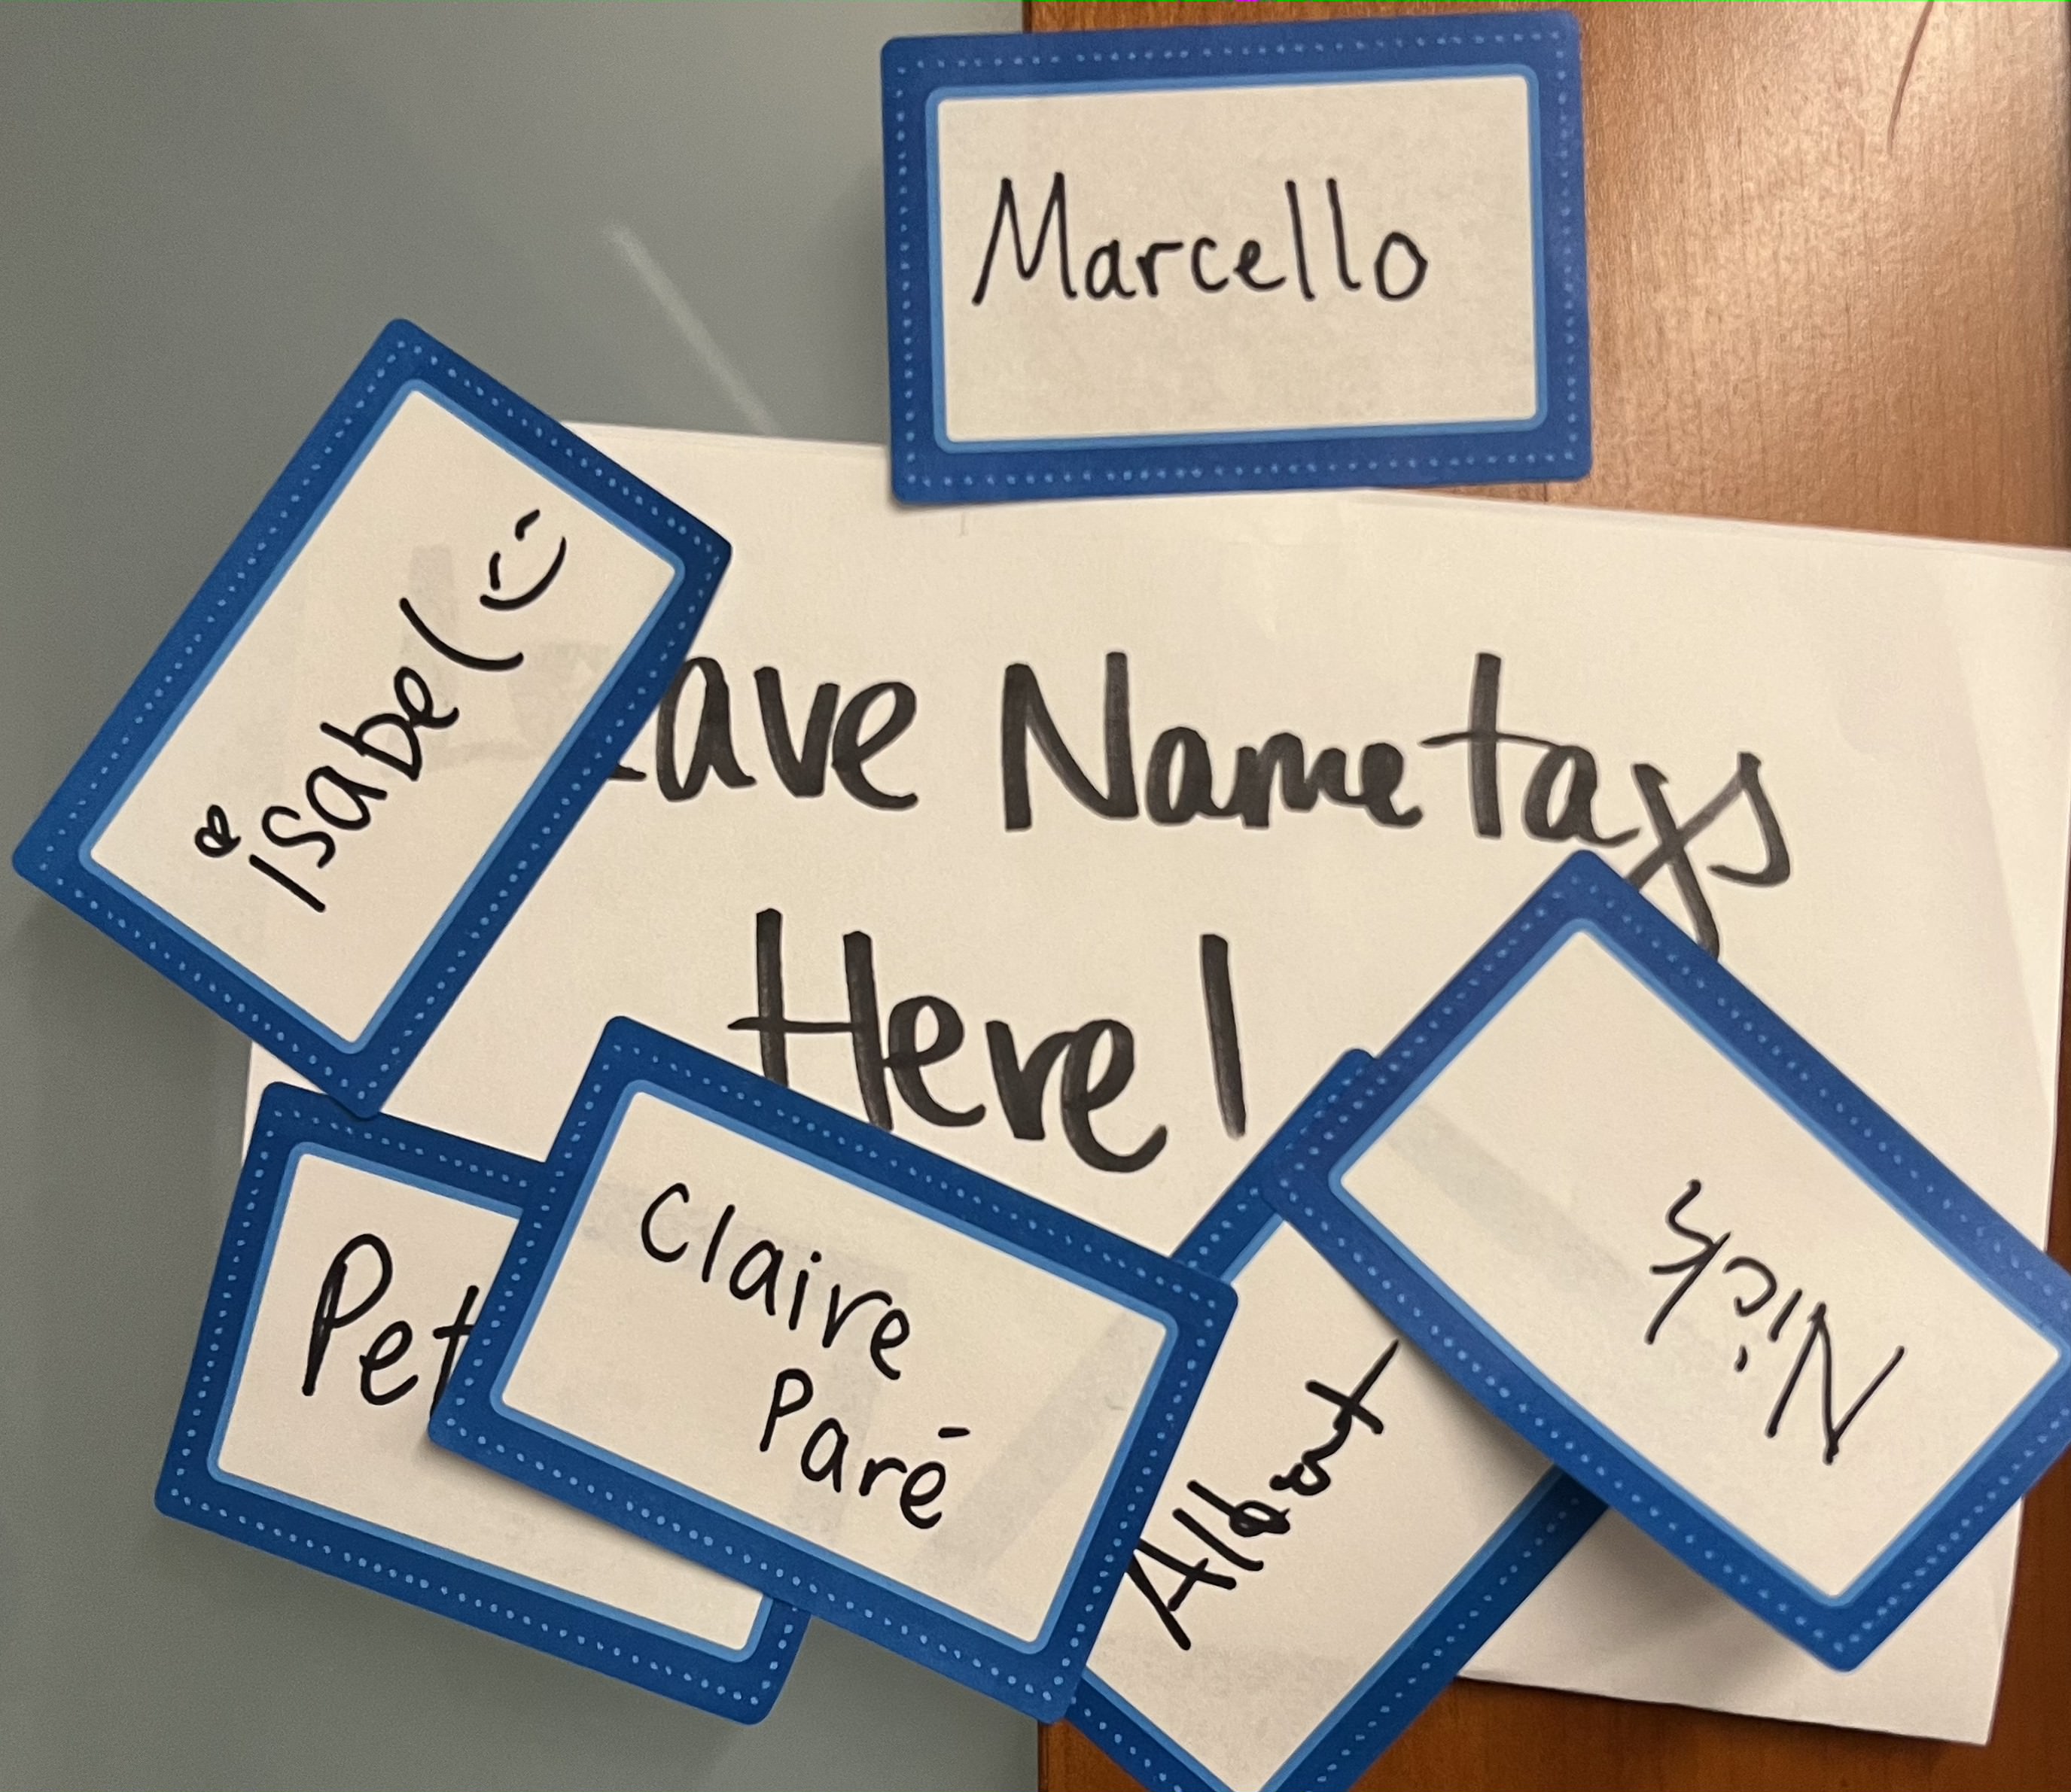 Marcello
isabel
ave Nametags
Here!
Pet
Claire
Paré
Albert
Nick